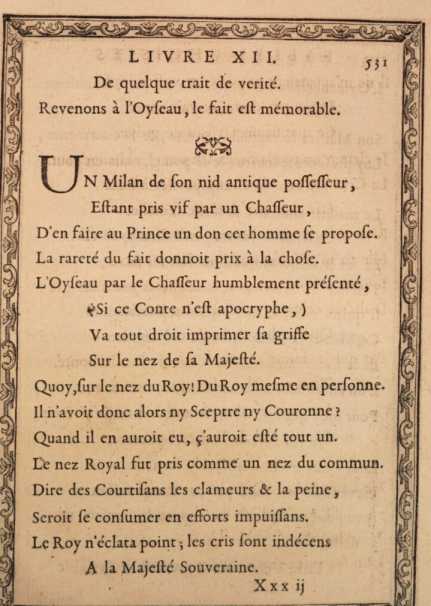 LIVRE XII. 531
De quelque trait de verité.
Revenons à l'Oyſeau, le fait eſt mémorable.
UN Milan de ſon nid antique poſſeſſeur,
Eſtant pris vif par un Chaſſeur,
D'en faire au Prince un don cet homme ſe propoſe.
La rareté du fait donnoit prix à la choſe.
L'Oyſeau par le Chaſſeur humblement préſenté,
(Si ce Conte n'eſt apocryphe,)
Va tout droit imprimer ſa griffe
Sur le nez de ſa Majeſté.
Quoy, ſur le nez du Roy! Du Roy meſme en perſonne.
Il n'avoit donc alors ny Sceptre ny Couronne?
Quand il en auroit eu, ç'auroit eſté tout un.
Le nez Royal fut pris comme un nez du commun.
Dire des Courtiſans les clameurs & la peine,
Seroit ſe conſumer en efforts impuiſſans.
Le Roy n'éclata point; les cris ſont indécens
A la Majeſté Souveraine.
Xxx ij